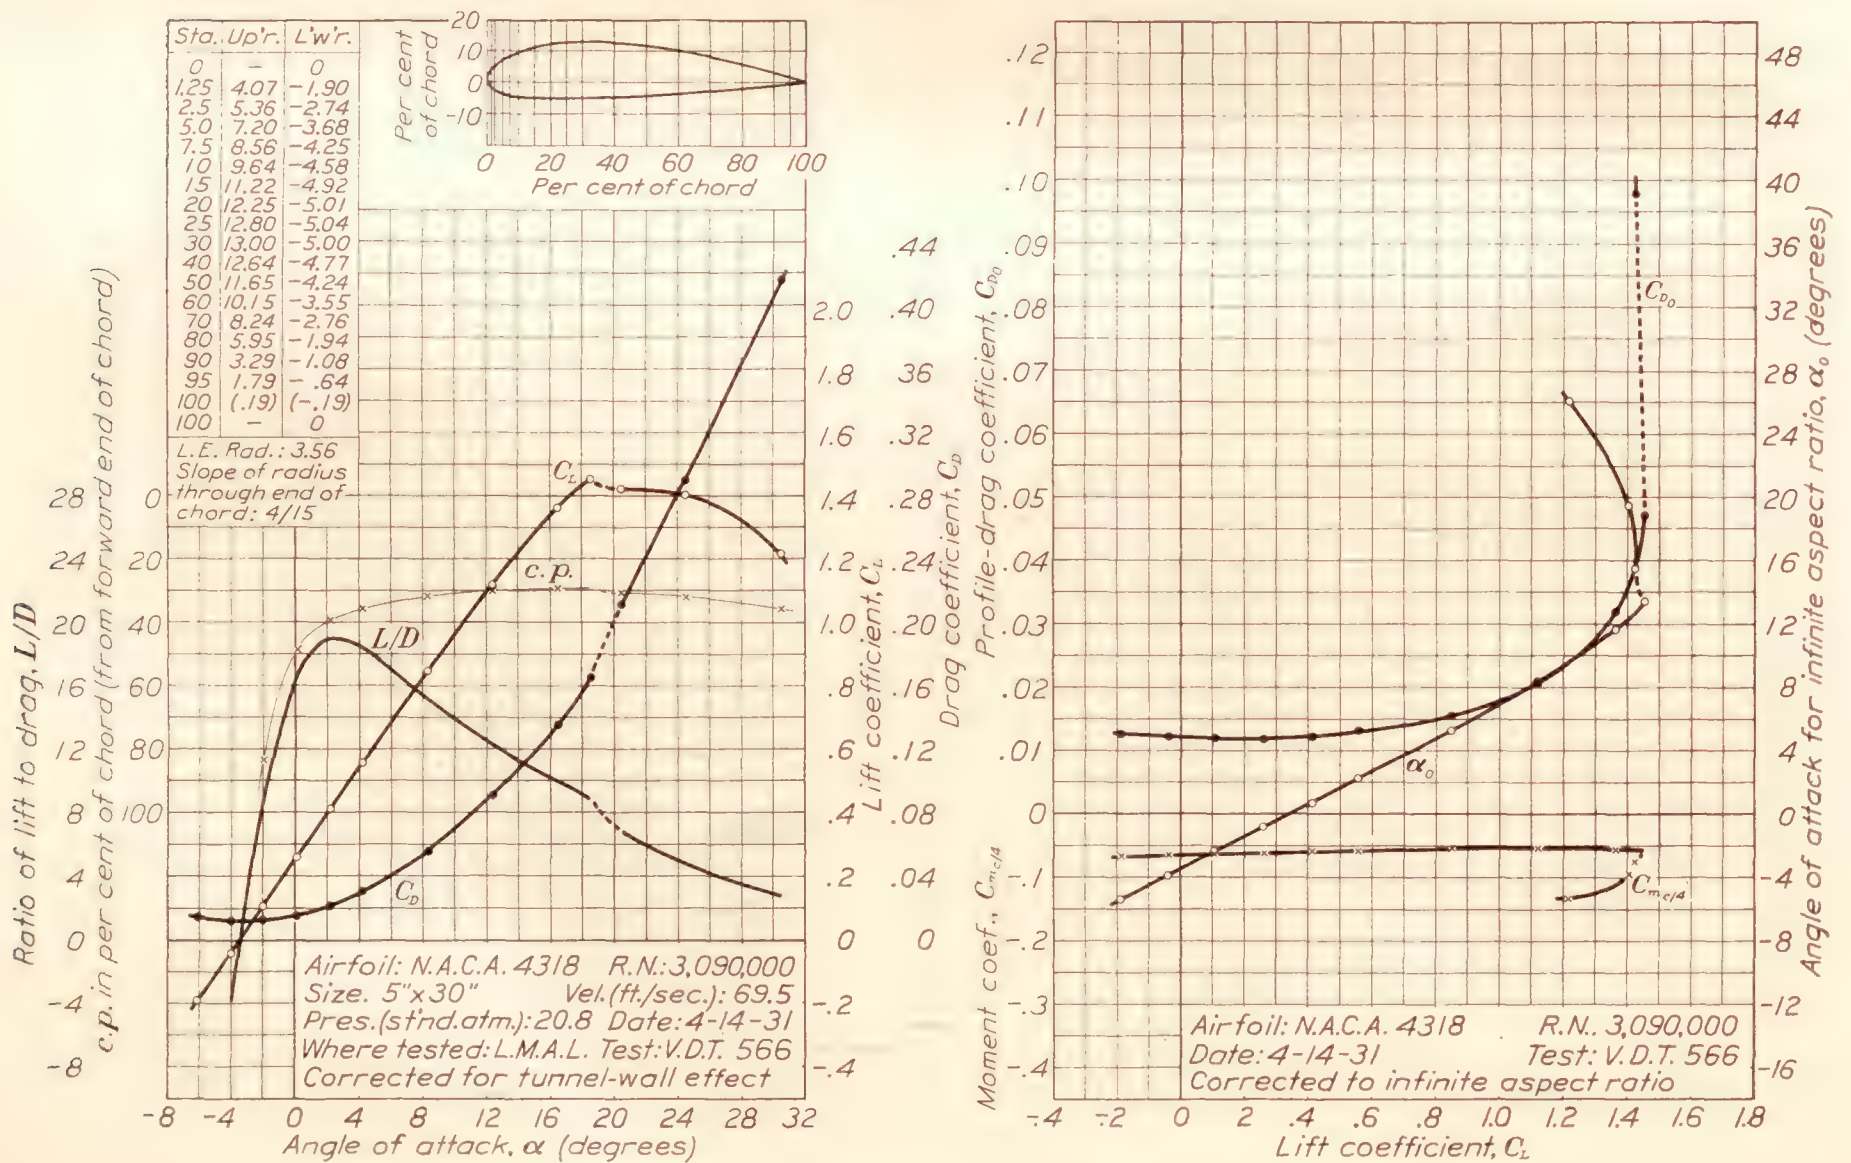 Sta. Up'r. L'w'r.
0 – 0
1.25 4.07 -1.90
2.5 5.36 -2.74
5.0 7.20 -3.68
7.5 8.56 -4.25
10 9.64 -4.58
15 11.22 -4.92
20 12.25 -5.01
25 12.80 -5.04
30 13.00 -5.00
40 12.64 -4.77
50 11.65 -4.24
60 10.15 -3.55
70 8.24 -2.76
80 5.95 -1.94
90 3.29 -1.08
95 1.79 -.64
100 (.19) (-.19)
100 – 0
L.E. Rad.: 3.56
Slope of radius
through end of
chord: 4/15
Per cent
of chord
20
10
0
-10
0 20 40 60 80 100
Per cent of chord
Ratio of lift to drag, L/D
28
24
20
16
12
8
4
0
-4
-8
c.p. in per cent of chord (from forward end of chord)
0
20
40
60
80
100
C_L
c.p.
L/D
C_D
2.0
1.8
1.6
1.4
1.2
1.0
.8
.6
.4
.2
0
-.2
-.4
Lift coefficient, C_L
.44
.40
.36
.32
.28
.24
.20
.16
.12
.08
.04
0
Drag coefficient, C_D
Airfoil: N.A.C.A. 4318 R.N.: 3,090,000
Size. 5"x30" Vel.(ft./sec.): 69.5
Pres.(st'nd.atm.): 20.8 Date: 4-14-31
Where tested: L.M.A.L. Test: V.D.T. 566
Corrected for tunnel-wall effect
-8 -4 0 4 8 12 16 20 24 28 32
Angle of attack, α (degrees)
Profile-drag coefficient, C_D0
.12
.11
.10
.09
.08
.07
.06
.05
.04
.03
.02
.01
0
Moment coef., C_mc/4
-.1
-.2
-.3
-.4
C_D0
α_0
C_mc/4
48
44
40
36
32
28
24
20
16
12
8
4
0
-4
-8
-12
-16
Angle of attack for infinite aspect ratio, α_0 (degrees)
Airfoil: N.A.C.A. 4318 R.N.. 3,090,000
Date: 4-14-31 Test: V.D.T. 566
Corrected to infinite aspect ratio
-.4 -.2 0 .2 .4 .6 .8 1.0 1.2 1.4 1.6 1.8
Lift coefficient, C_L